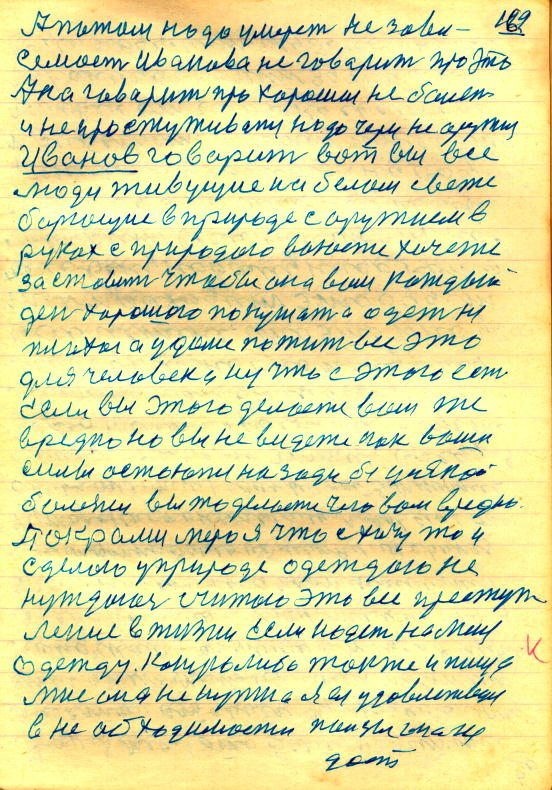 169
А потом надо умерет не зави-
семост Иванова не говарит про Это
Ана говарит про хорошии не болет
и не простуживатя надо через не
Иванов говарит вот вы все
люди живущие на белом свете
борющие в природе с оружием в
руках с природаю воюете хочете
заставит чтобы она вам каждый
ден хорошого покушат а одетця
плохо а у доме пожит все Это
для человека ну что с Этого ест
Если вы Этого делаете вам же
вредно но вы не видете как ваши
силы остаютя назади
болезни вы то делаете чего вам вредно.
что я хочу то и
сделаю у природе одеждаю не
нуждаюся считаю Это все преступ
ление в жизни Если надет на меня
Одежду. Какую либо также и пища
мне она не нужна я ей удовлетвор
в не обходимости
дост
К